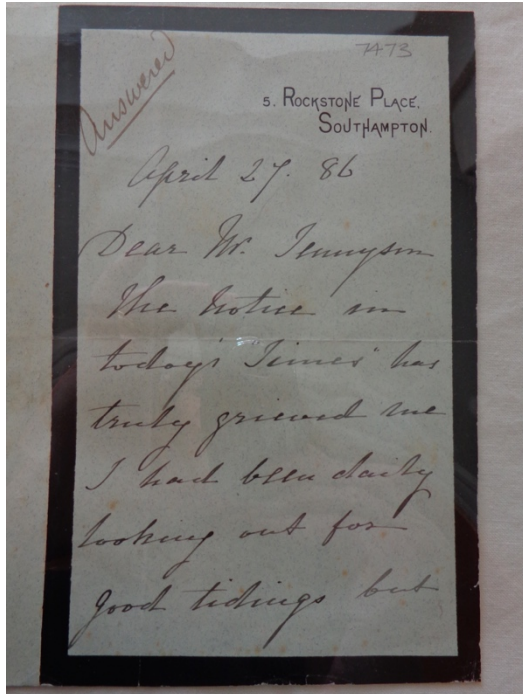 Answered
7473
5. ROCKSTONE PLACE.
SOUTHAMPTON.
April 27. 86
Dear Mr. Tennyson
The Notice in
today's "Times" has
truly grieved me
I had been daily
looking out for
good tidings but